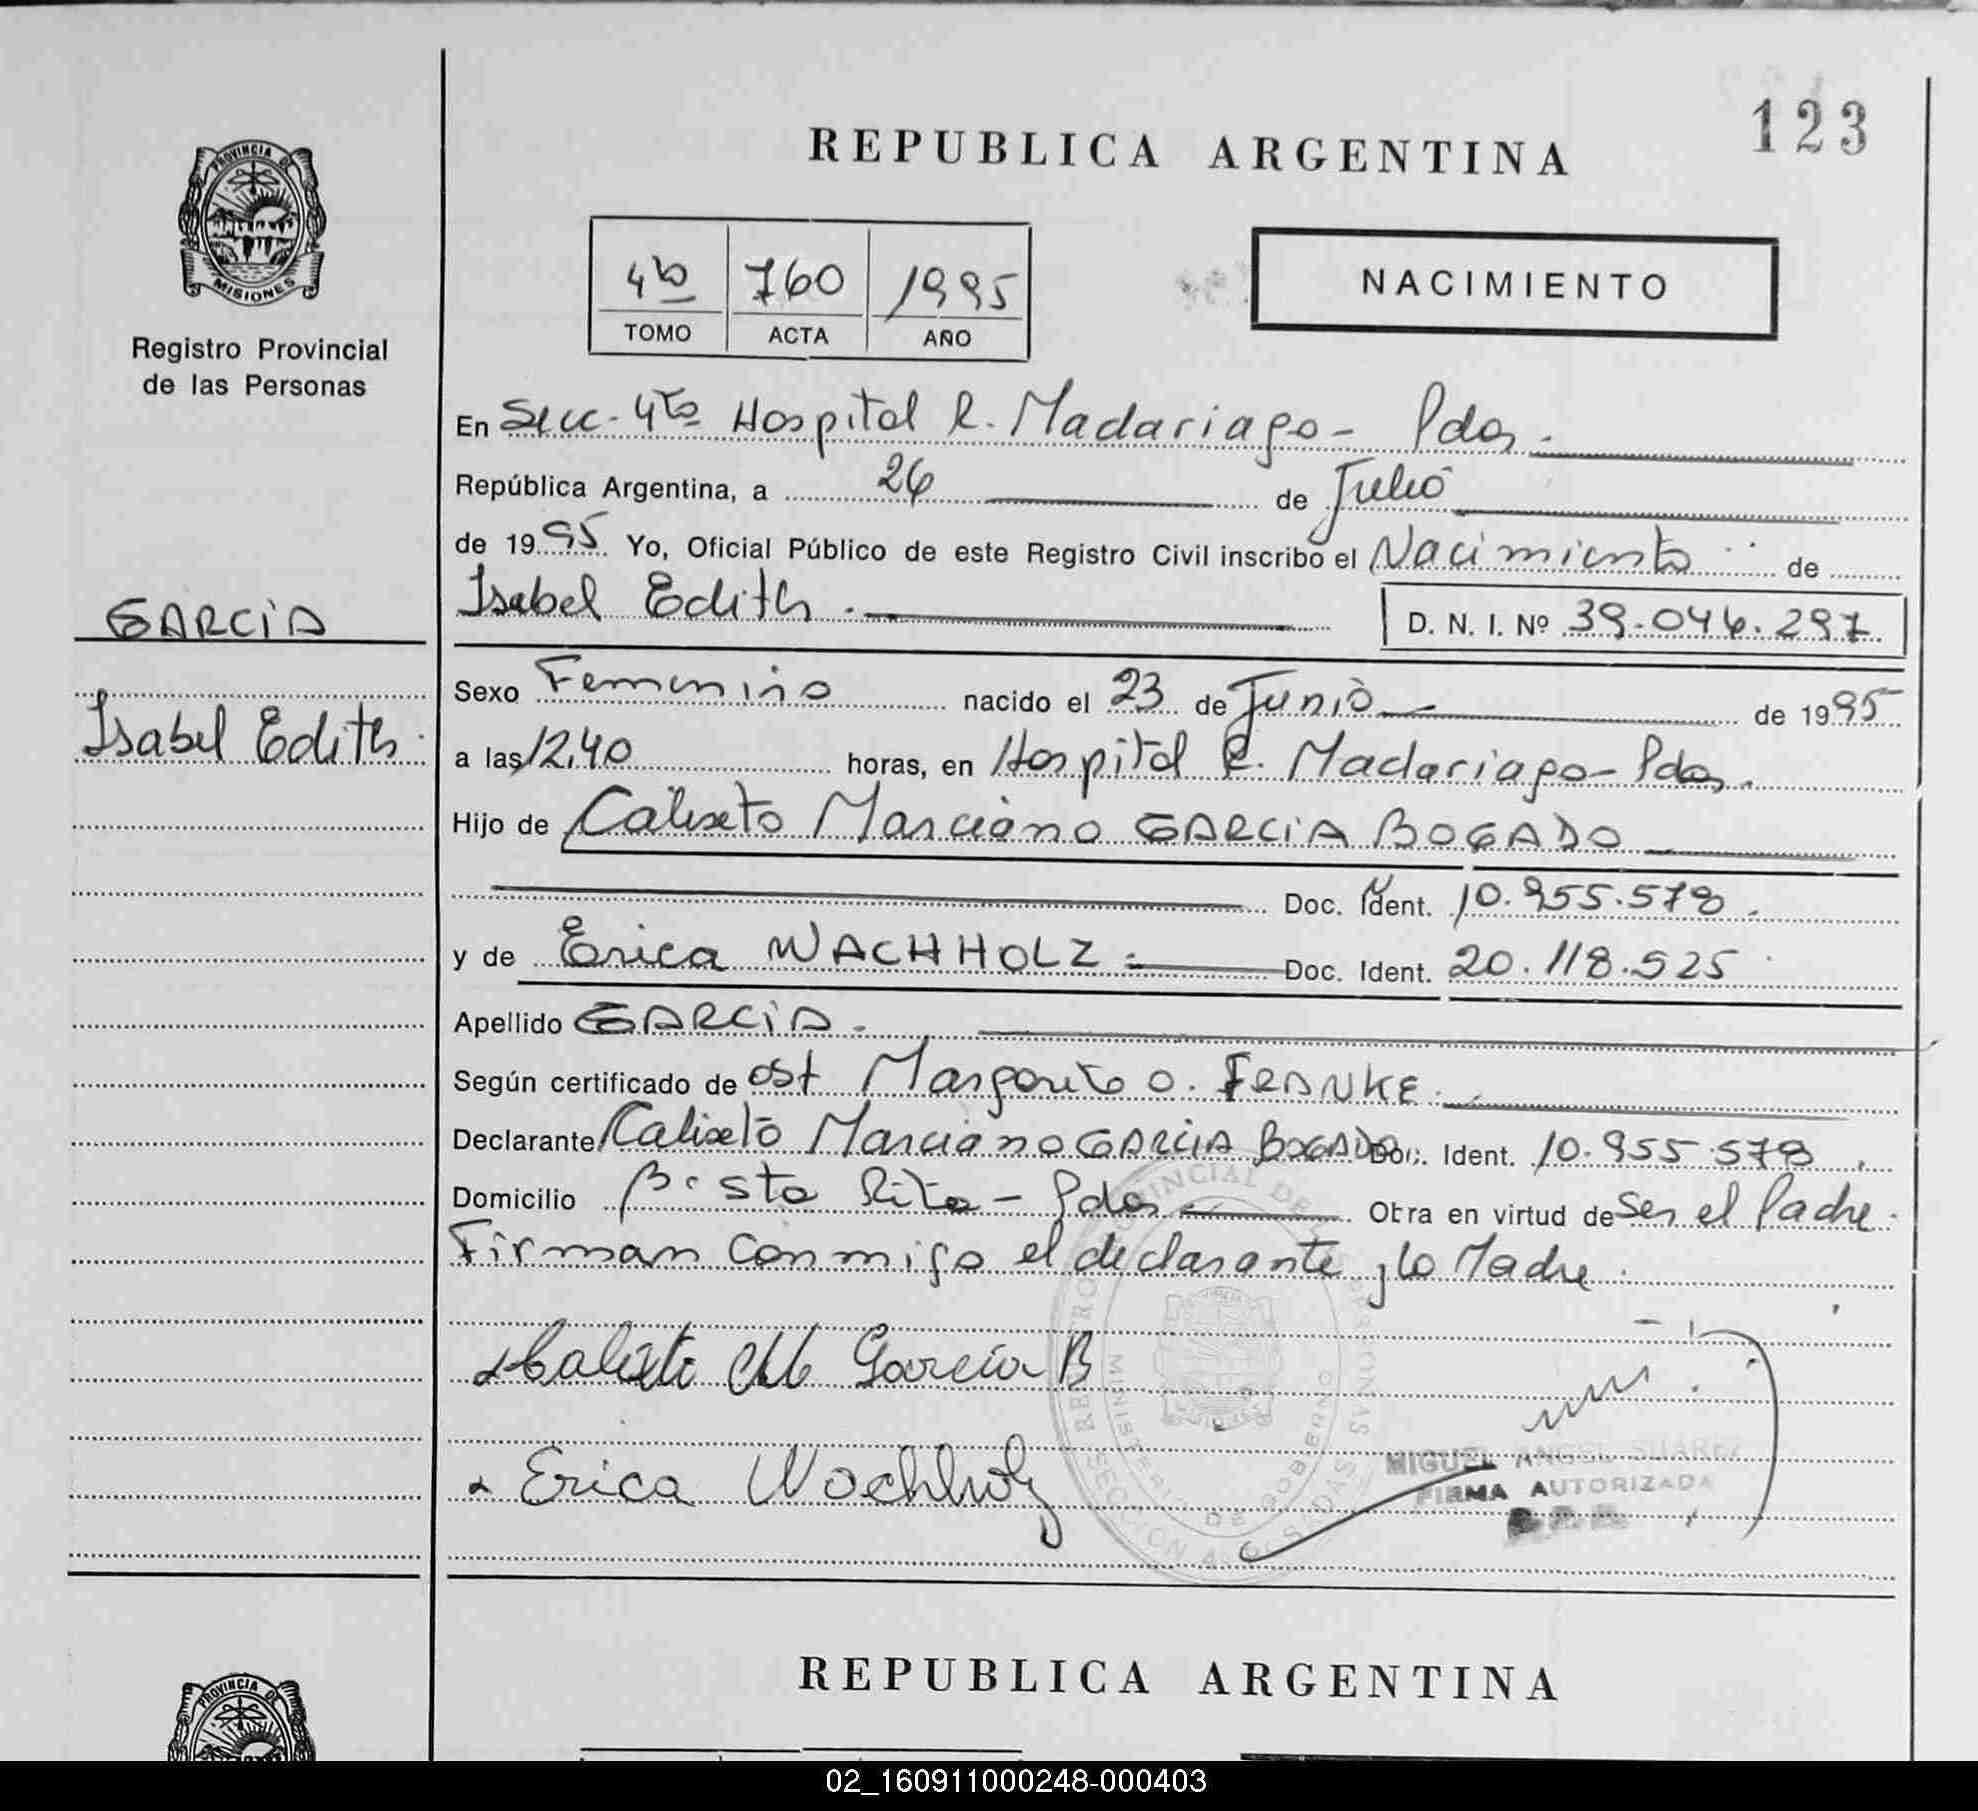 123
REPUBLICA ARGENTINA
PROVINCIA DE
MISIONES
Registro Provincial
de las Personas
4to 760 1995
TOMO ACTA AÑO
NACIMIENTO
En Secc. 4ta Hospital R. Madariaga - Pdas.
República Argentina, a 26 de Julio
de 1995 Yo, Oficial Público de este Registro Civil inscribo el Nacimiento de
Isabel Edith. D. N. I. Nº 39.044.297
GARCIA
Isabel Edith.
Sexo Femenino nacido el 23 de Junio de 1995
a las 12,40 horas, en Hospital R. Madariaga - Pdas.
Hijo de Calixto Marciano GARCIA BOGADO
Doc. Ident. 10.955.578.
y de Erica WACHHOLZ Doc. Ident. 20.118.525
Apellido GARCIA.
Según certificado de Ost Margarita O. FRANKE.
Declarante Calixto Marciano GARCIA BOGADO Doc. Ident. 10.955.578.
Domicilio Bº Sta Rita - Pdas. Otra en virtud de ser el Padre.
Firman conmigo el declarante y la Madre.
Calixto M Garcia B
Erica Wachholz
MIGUEL ANGEL SUAREZ
FIRMA AUTORIZADA
REPUBLICA ARGENTINA
PROVINCIA DE
02_160911000248-000403